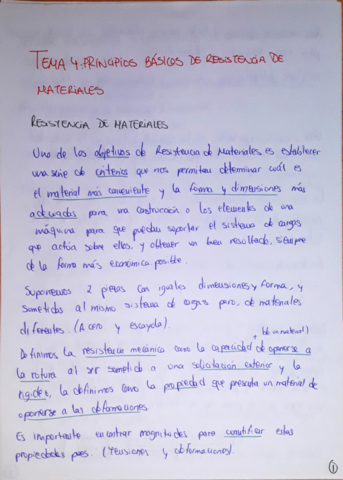 TEMA 4: PRINCIPIOS BÁSICOS DE RESISTENCIA DE
MATERIALES
RESISTENCIA DE MATERIALES
Uno de los objetivos de Resistencia de Materiales es establecer
una serie de criterios que nos permitan determinar cuál es
el material más conveniente y la forma y dimensiones más
adecuadas para una construcción o los elementos de una
máquina para que puedan soportar el sistema de cargas
que actúa sobre ellos, y obtener un buen resultado, siempre
de la forma más económica posible.
Suponemos 2 piezas con iguales dimensiones y forma, y
sometidas al mismo sistema de cargas pero, de materiales
diferentes. (Acero y escayola).
(de un material)
Definimos la resistencia mecánica como la capacidad de oponerse a
la rotura al ser sometido a una solicitación exterior y la
rigidez, la definimos como la propiedad que presenta un material de
oponerse a las deformaciones.
Es importante encontrar magnitudes para cuantificar estas
propiedades pues. (Tensiones y deformaciones).
1